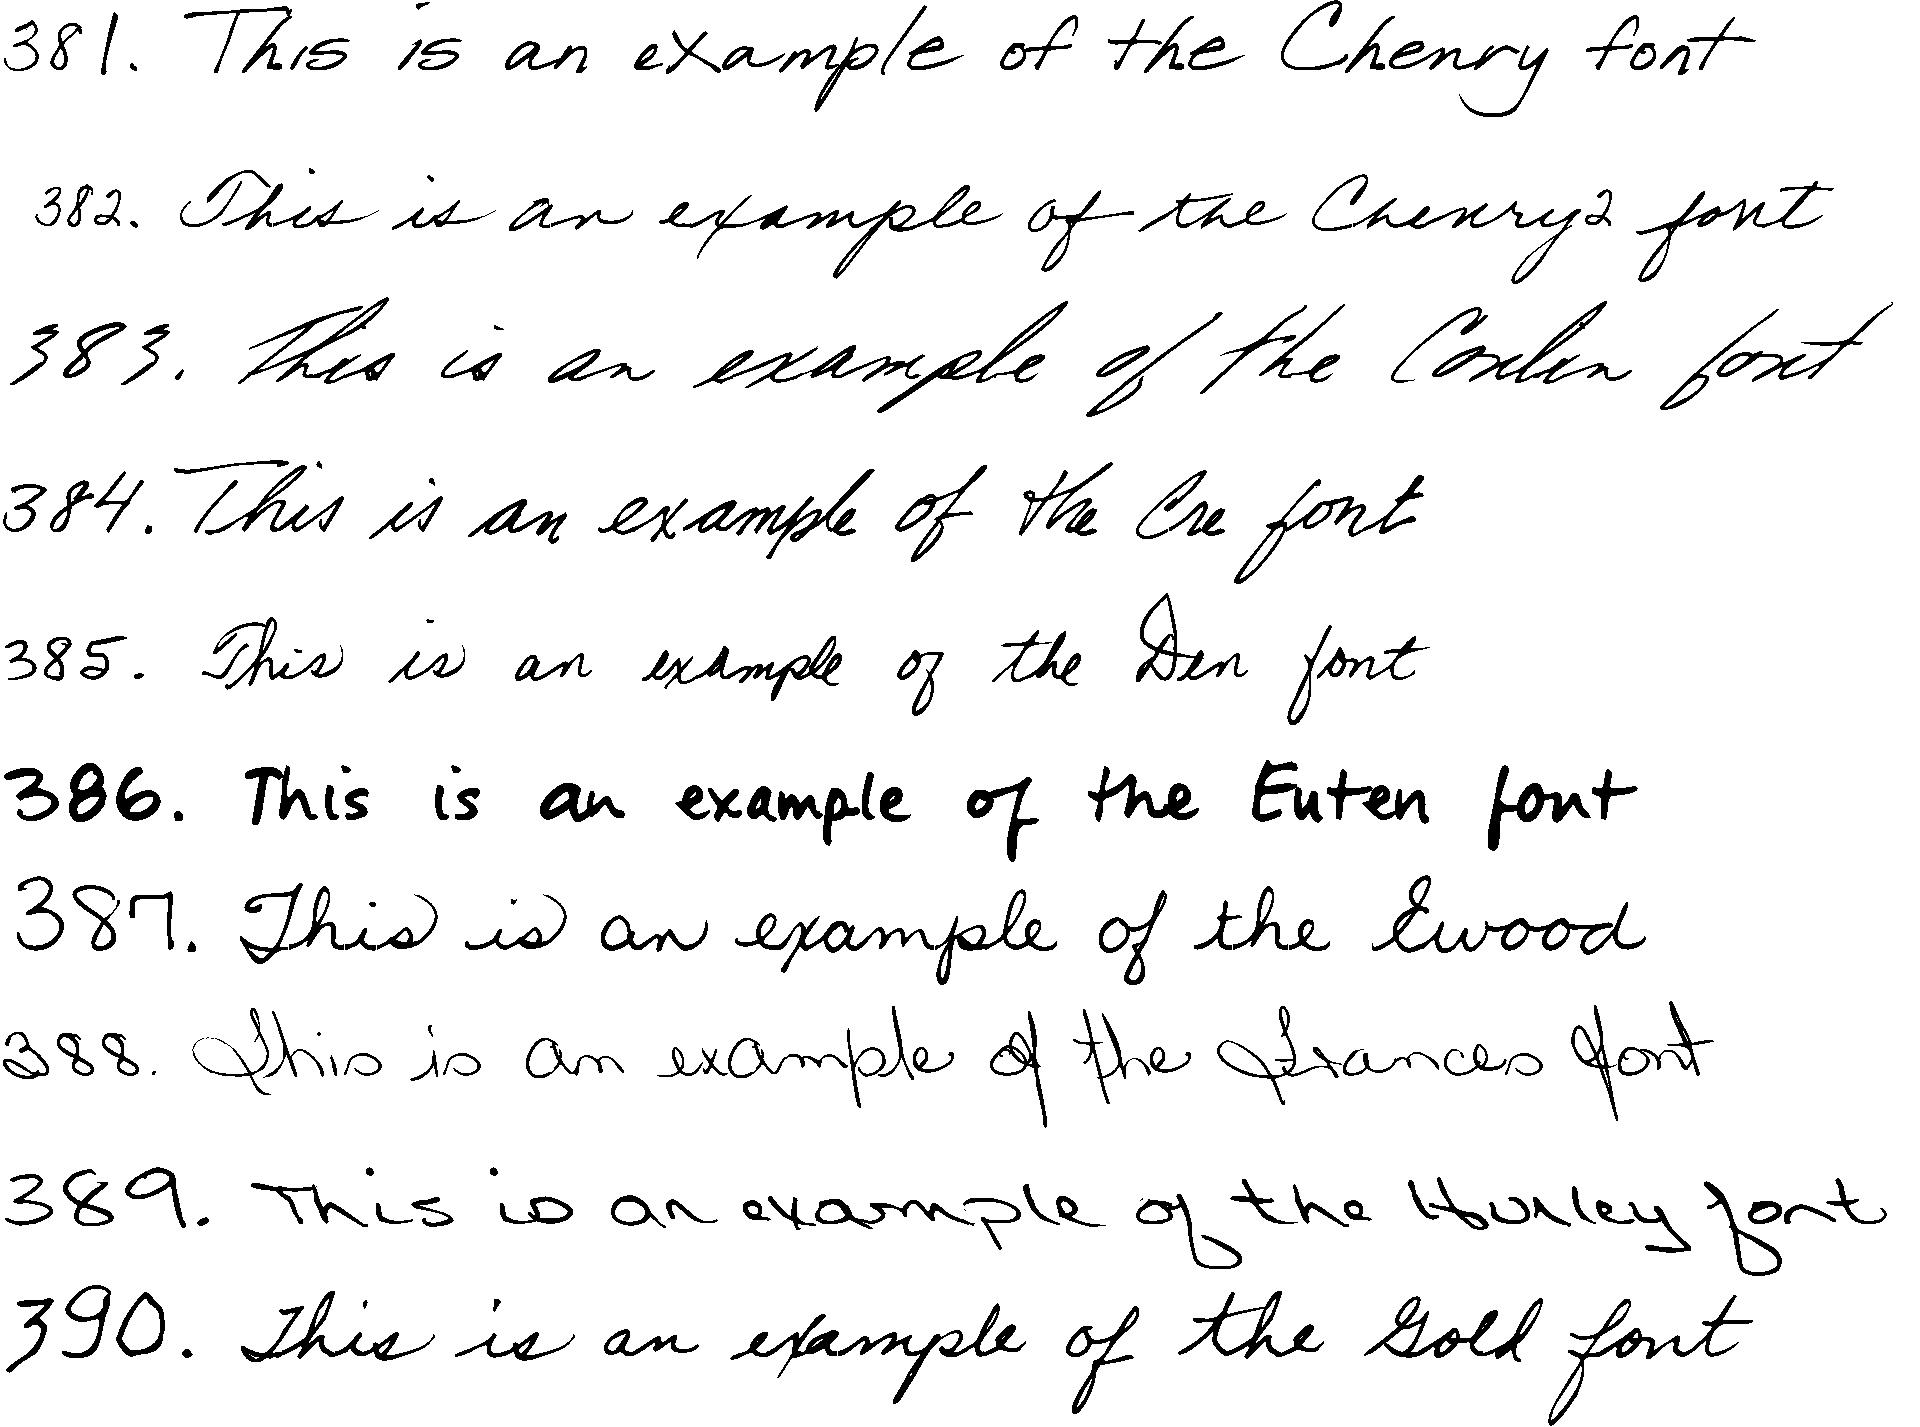 381. This is an example of the Chenry font
382. This is an example of the Chenry2 font
383. This is an example of the Conlin font
384. This is an example of the Cre font
385. This is an example of the Den font
386. This is an example of the Euten font
387. This is an example of the Ewood
388. This is an example of the Frances font
389. This is an example of the Hurley font
390. This is an example of the Gold font